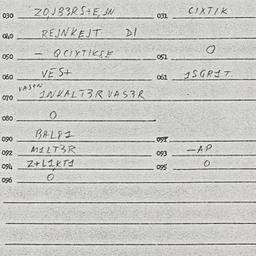 030 ZOJB3RS+E,JN 031 CIXTIK
040 REJNKEJT DI
050 – QCIYTIKSE 051 O
060 VES+ 061 1SGR1T
070 VAS3R 1NKALT3R VAS3R
080 O
090 BAL91 091
092 M1LT3R 093 –AP
094 Z+L1KT1 095 O
096 O